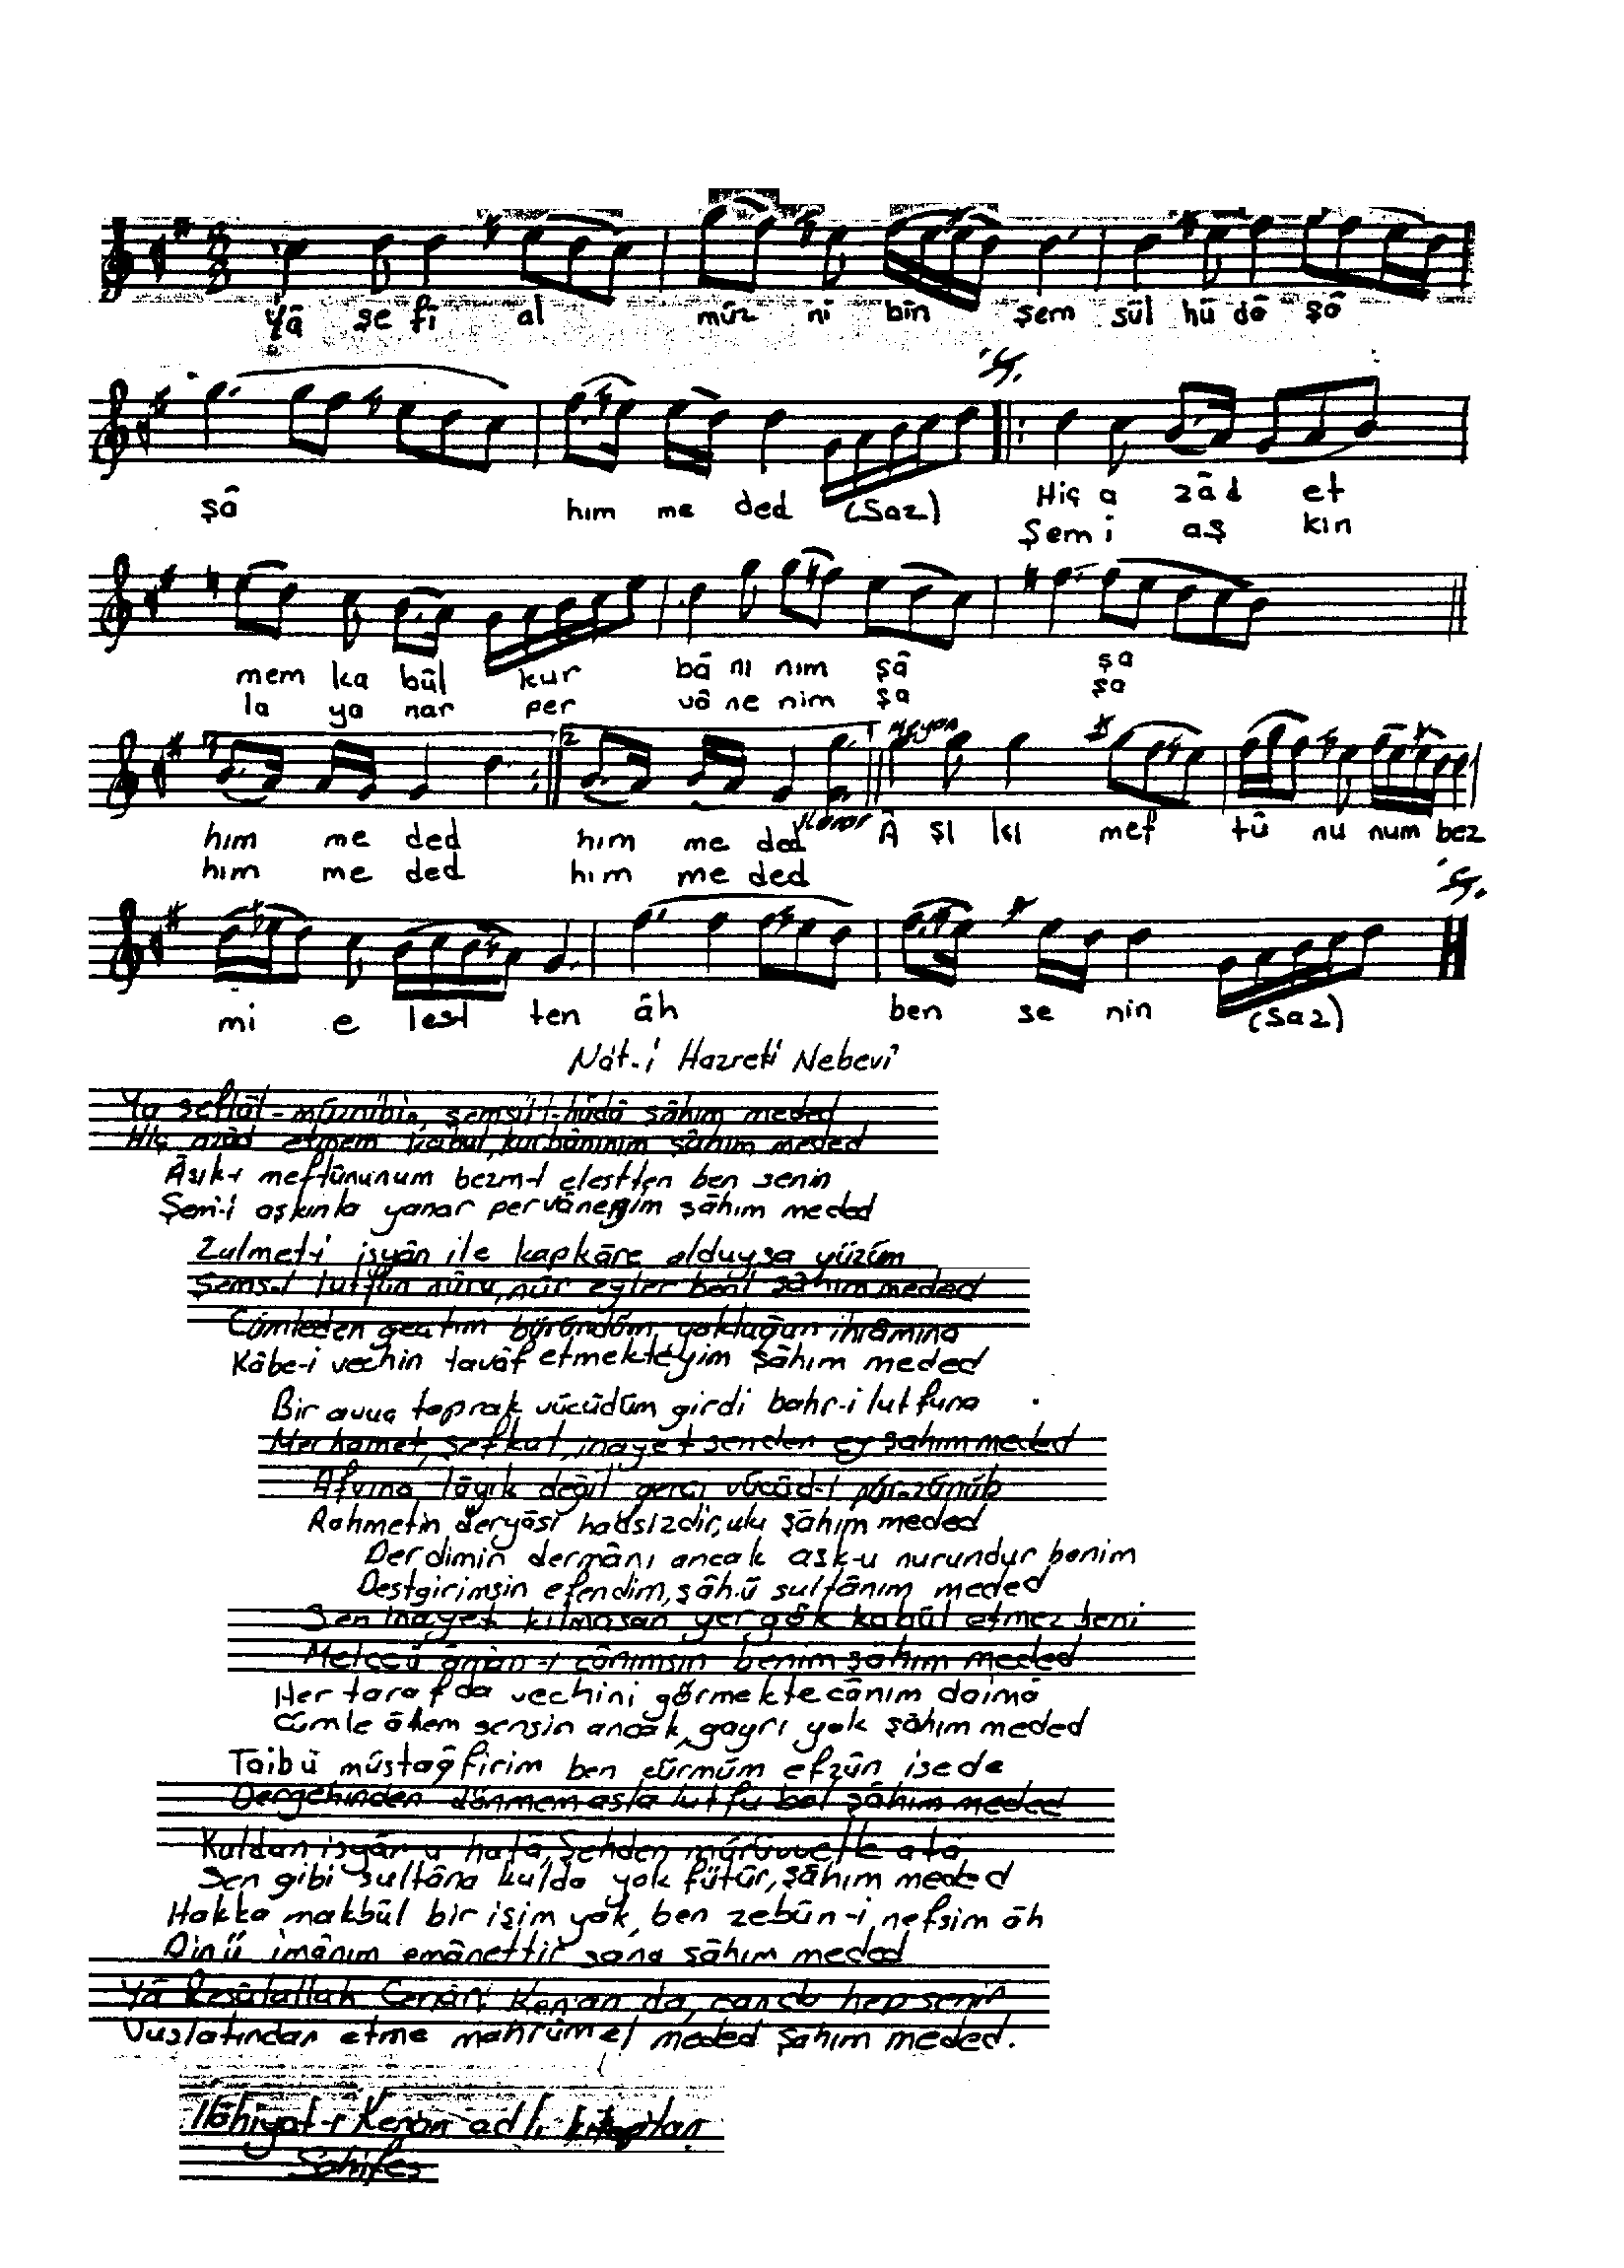 Yâ şe fî al müz ni bîn şem sül hü dâ şâ
şâ hım me ded (Saz) Hiç a zâd et
Şem i aş kın
mem ka bûl kur bâ nı nım şâ şa
la ya nar per vâ ne nim şa şa
1 2 Meyan
him me ded him me ded Karar Â şı kı mef tû nu num bez
him me ded him me ded
mi e lest ten âh ben se nin (Saz)
Nât-i Hazreti Nebevî
Ya şefîâl-müznibîn, şemsü'l-hüdâ şâhım meded
Hiç azâd etmem kabul, kurbânınım şâhım meded
Âşık-ı meftûnunum bezm-i elestten ben senin
Şem'-i aşkınla yanar pervânenim şâhım meded
Zulmet-i isyân ile kapkâre olduysa yüzüm
Şems-i lutfun nûru, nûr eyler beni şâhım meded
Cümleden geçtim büründüm, yokluğun ihrâmına
Kâbe-i vechin tavâf etmekteyim şâhım meded
Bir avuç toprak vücûdüm girdi bahr-i lutfuna
Merhamet, şefkat, inayet senden ey şahım meded
Afvına lâyık değil gerçi vücûd-i pür-zünûb
Rahmetin deryâsı hadsizdir, ulu şâhım meded
Derdimin dermânı ancak aşk-u nurundur benim
Destgirimsin efendim, şâh-ü sultânım meded
Sen inâyet kılmasan yer gök kabûl etmez beni
Melceü âmân-ı cânımsın benim şâhım meded
Her tarafda vechini görmekte cânım daimâ
Cümle âlem sensin ancak, gayrı yok şâhım meded
Tâib ü müstağfirim ben cürmüm efzûn isede
Dergehinden dönmem asla lutfu bol şâhım meded
Kuldan isyân u hatâ, Şehden mürüvvetle atâ
Sen gibi sultâna kulda yok fütûr, şâhım meded
Hakka makbûl bir işim yok, ben zebûn-i nefsim âh
Dinü imânım emânettir sana şâhım meded
Yâ Resûlallah Cenân-i Ken'an da, can da hep senin
Vuslatından etme mahrûm el meded şâhım meded.
İlâhiyat-ı Kenan adlı kitaptan
Sahifes